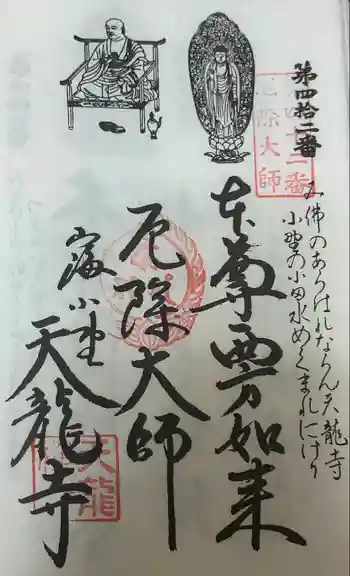 第四拾二番
み佛のあらはれなりん天龍寺
小野の小田水めぐまれにけり
本尊西方如来
厄除大師
小野
天龍寺
四十二番
厄除大師
天龍